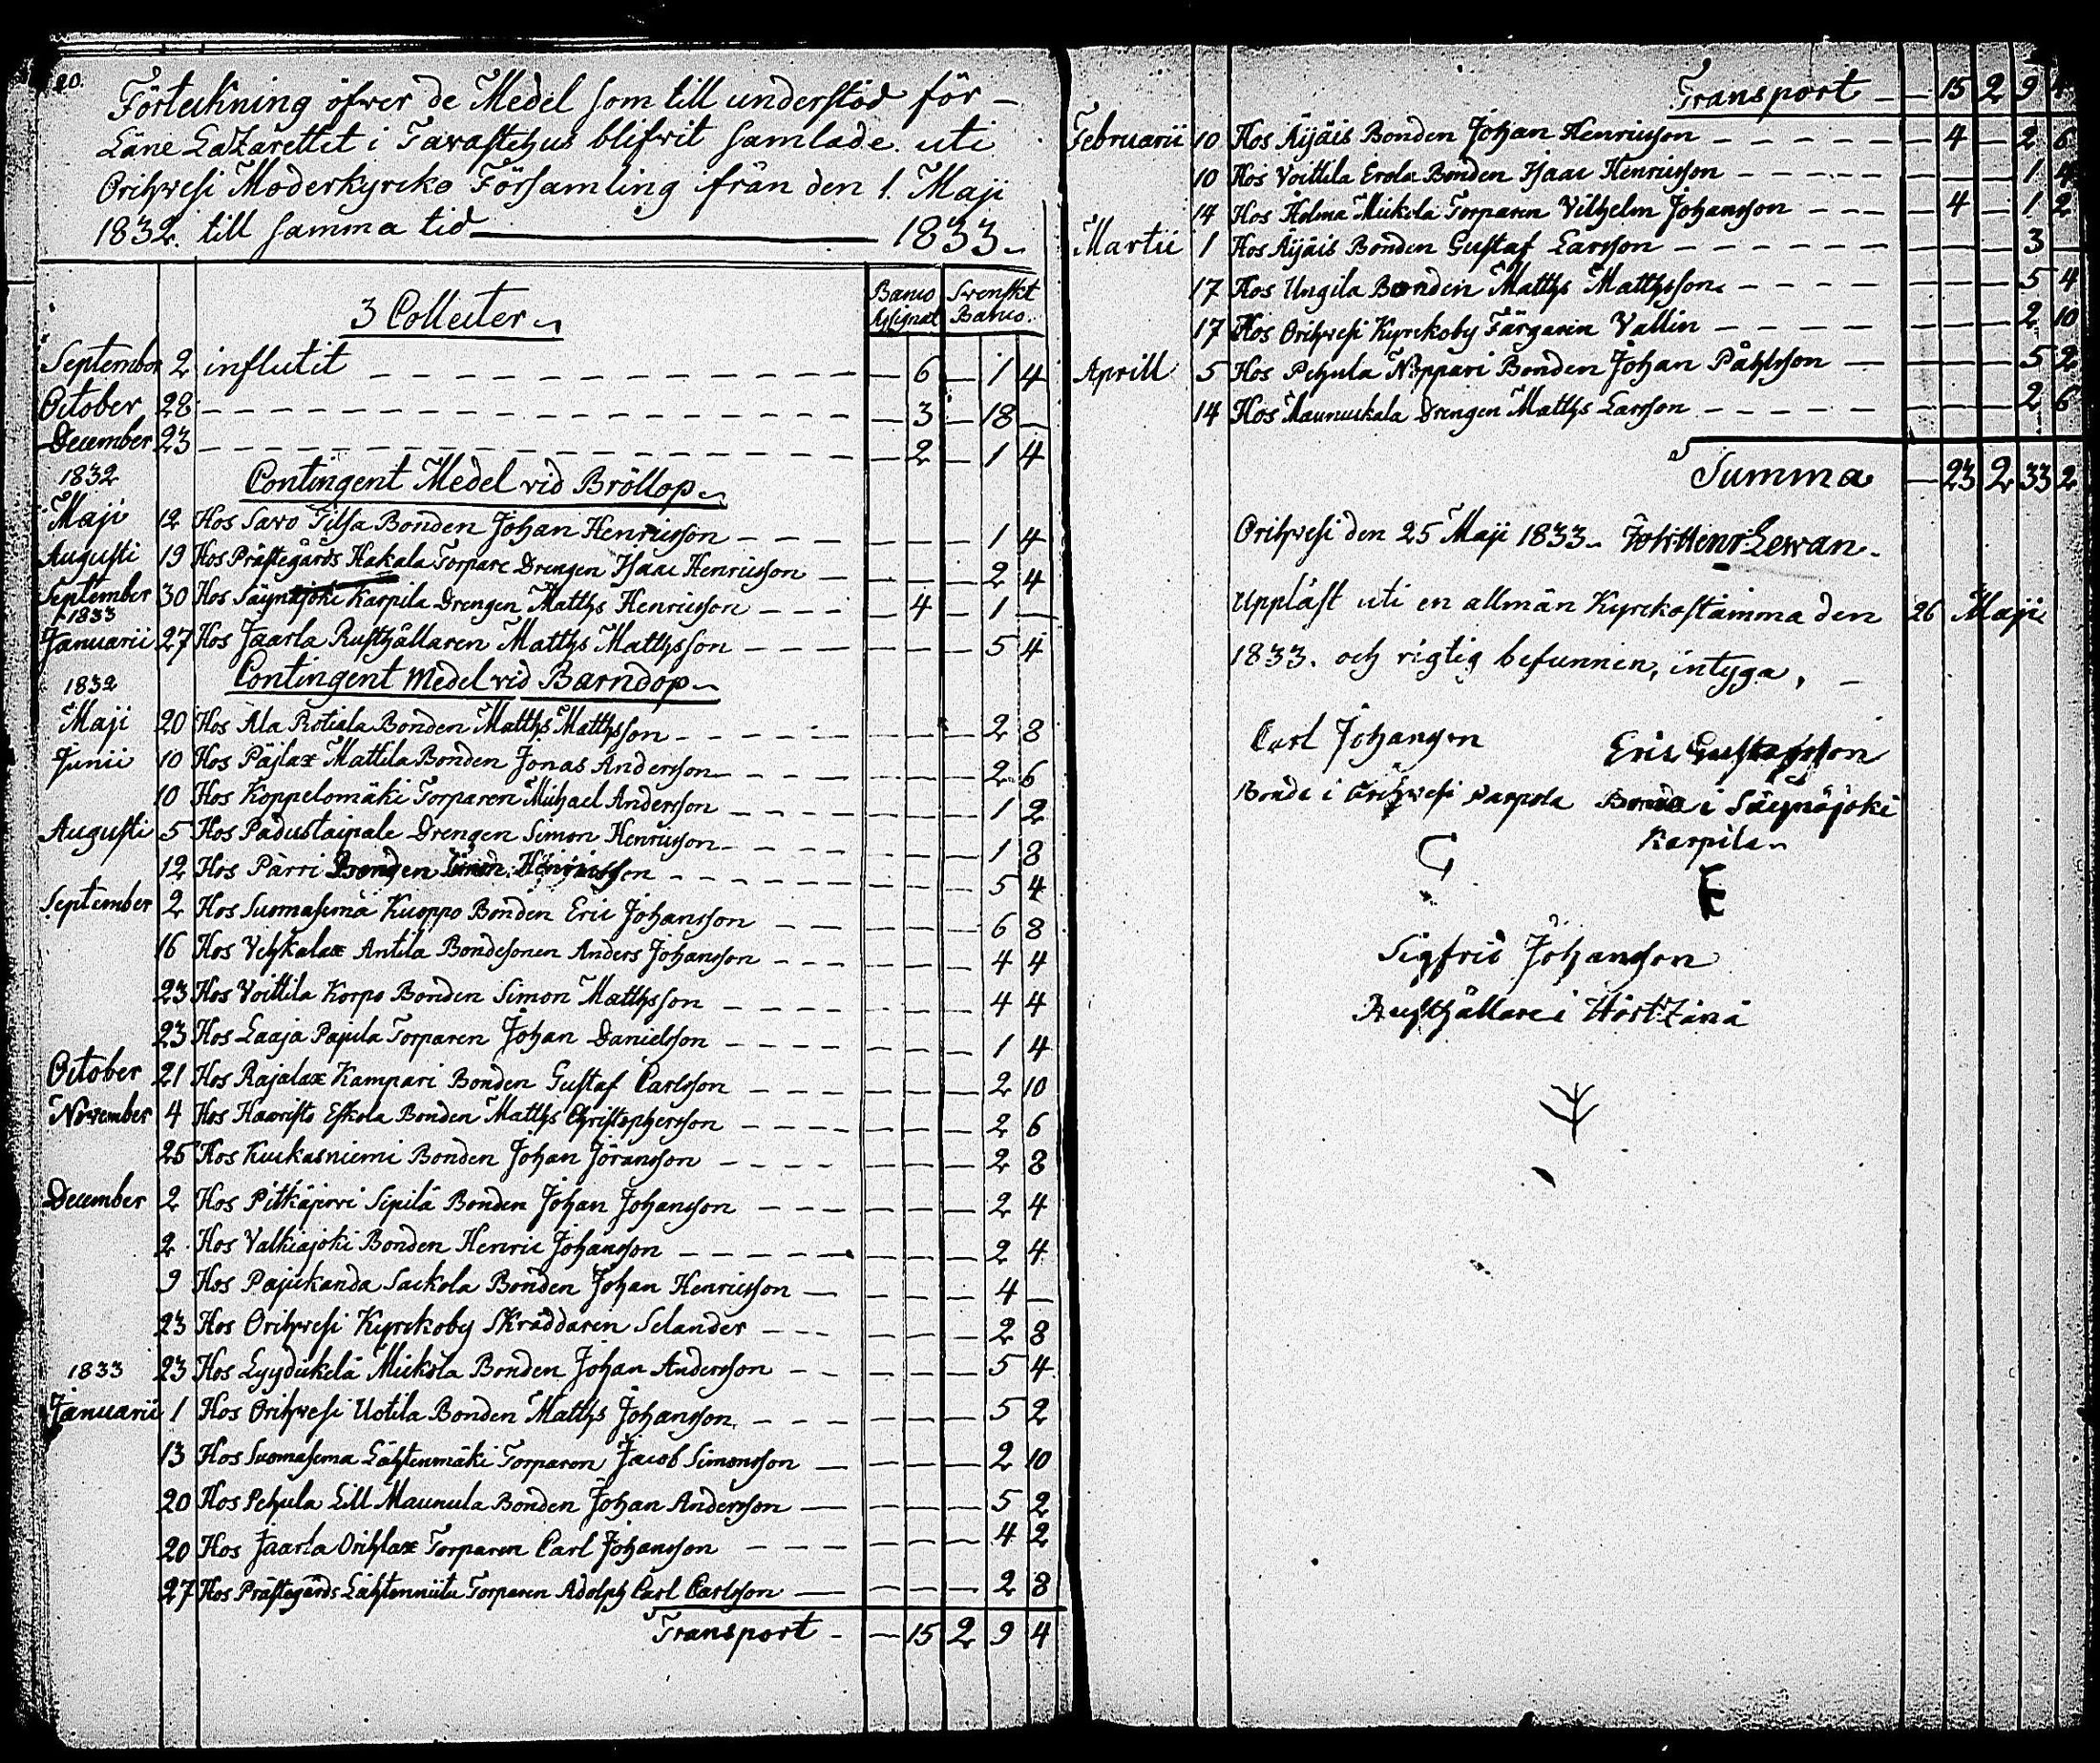 20.
Förteckning öfwer de Medel som till understöd för
Läne Lazarettet i Tavastehus blifvit samlade uti
Orihvesi Moderkyrcko Församling ifrån den 1. Maji
1832. till samma tid — 1833.
3 Collecter
Banco Assignat Svenskt Banco.
September 2 influtit — 6 — 1 4
October 28 — 3 — 18 —
December 23 — 2 — 1 4
1832 Contingent Medel vid Bröllop
Maji 12 Hos Savo Tilsa Bonden Johan Henricsson — 1 4
Augusti 19 Hos Prästegårds Hakala Torpare Drengen Isaac Henricsson — 2 4
September 30 Hos Säynäjoki Karpila Drengen Matths Henricsson — 4 — 1 —
1833
Januarii 27 Hos Jaarla Rusthållaren Matths Mattsson — 5 4
1832 Contingent Medel vid Barndop
Maji 20 Hos Ala Rotiala Bonden Matths Matthsson — 2 8
Junii 10 Hos Päjlax Mattila Bonden Jonas Andersson — 2 6
10 Hos Koppelomäki Torparen Michael Andersson — 1 2
Augusti 5 Hos Padustaipale Drengen Simon Henricsson — 1 8
12 Hos Pärri Simon Henricsson — 5 4
September 2 Hos Suomasema Kuoppo Bonden Eric Johansson — 6 8
16 Hos Vehkalax Antila Bondesonen Anders Johansson — 4 4
23 Hos Voittila Korpo Bonden Simon Matthsson — 4 4
23 Hos Laaja Pajula Torparen Johan Danielsson — 1 4
October 21 Hos Rajalax Kampari Bonden Gustaf Carlsson — 2 10
November 4 Hos Haavisto Eskola Bonden Matths Christophersson — 2 6
25 Hos Kuckasniemi Bonden Johan Jöransson — 2 8
December 2 Hos Pitkäjärvi Sipilä Bonden Johan Johansson — 2 4
2 Hos Valkiajoki Bonden Henric Johansson — 2 4
9 Hos Pajukanda Sackola Bonden Johan Henricsson — 4 —
23 Hos Orihvesi Kyrckoby Skräddaren Selander — 2 8
1833 23 Hos Lyydickelä Mickola Bonden Johan Andersson — 5 4
Januarii 1 Hos Orihvesi Uotila Bonden Matths Johansson — 5 2
13 Hos Suomasema Lähtenmäki Torparen Jacob Simonsson — 2 10
20 Hos Pehula Lill Maunula Bonden Johan Andersson — 5 2
20 Hos Jaarla Orihlax Torparen Carl Johansson — 4 2
27 Hos Prästegårds Lähtenniitu Torparen Adolph Carl Carlsson — 2 8
Transport — 15 2 9 4
Transport — 15 2 9 4
Februarii 10 Hos Äijäis Bonden Johan Henricsson — 4 — 2 6
10 Hos Voittila Erola Bonden Isaac Henricsson — 1 4
14 Hos Holma Mickola Torparen Vilhelm Johansson — 4 — 1 2
Martii 1 Hos Äijäis Bonden Gustaf Larsson — 3 —
17 Hos Ungila Bonden Matths Matthsson — 5 4
17 Hos Orihvesi Kyrckoby Färgaren Vallin — 2 10
Aprill 5 Hos Pehula Noppari Bonden Johan Påhlsson — 5 2
14 Hos Maunuckala Drengen Matths Larsson — 2 6
Summa — 23 2 33 2
Orihvesi den 25 Maji 1833. Joh Henr Lewan.
Uppläst uti en allmän Kyrckostämma den 26 Maji
1833. och rigtig befunnen, intyga,
Carl Johansson Eric Gustafsson
Bonde i Orihvesi Bonde i Säynäjoki
Karpila
Sigfrid Johansson
Rusthållare i